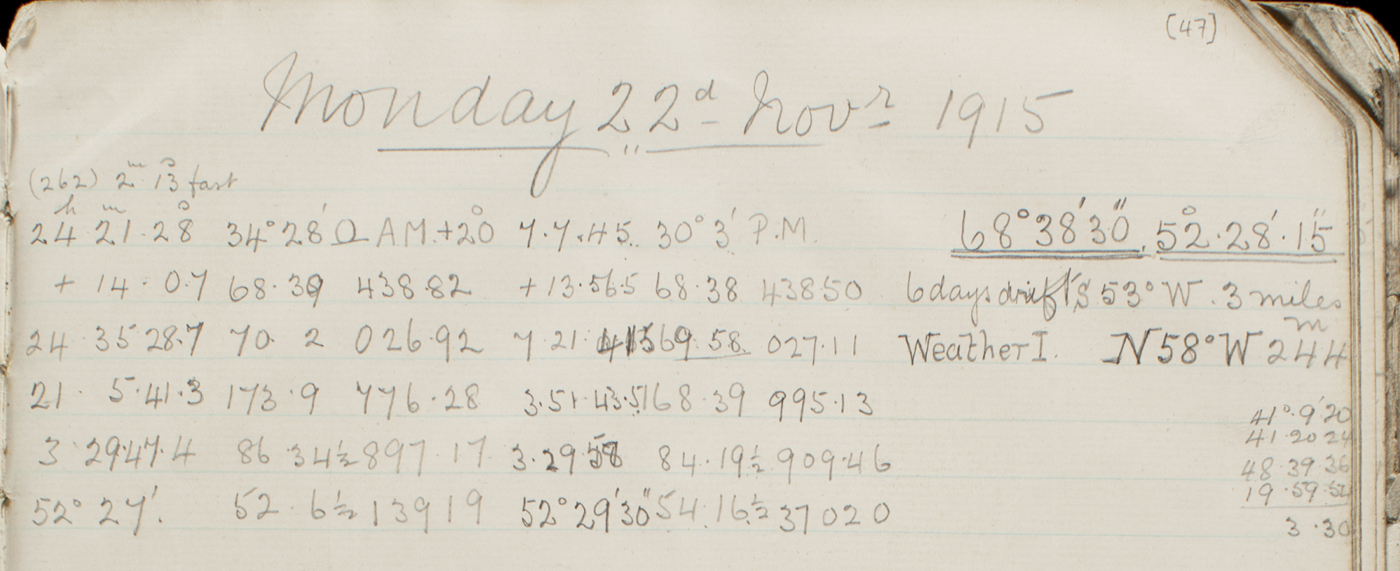 [47]
Monday 22d Novr 1915
(262) 2m 13s fast
24h 21m 28s 34° 28' Ω A.M. +20 7.7.45. 30° 3' P.M. 68° 38' 30" 52° 28' 15"
+ 14. 0.7 68.39 438.82 + 13.56.5 68.38 43850 6 days drift S 53° W. 3 miles
24 35 28.7 70. 2 026.92 7.21. 69.58 027.11 Weather I. N 58° W 244m
21. 5.41.3 173.9 776.28 3.51.43.5 168.39 995.13 41°.9'20
41.20 24
3 29.47.4 86 34½ 897.17 3.29 58 84.19½ 909.46 48.39.36
19.59.54
52° 27'. 52. 6½ 13919 52° 29' 30" 54.16½ 37020 3.30